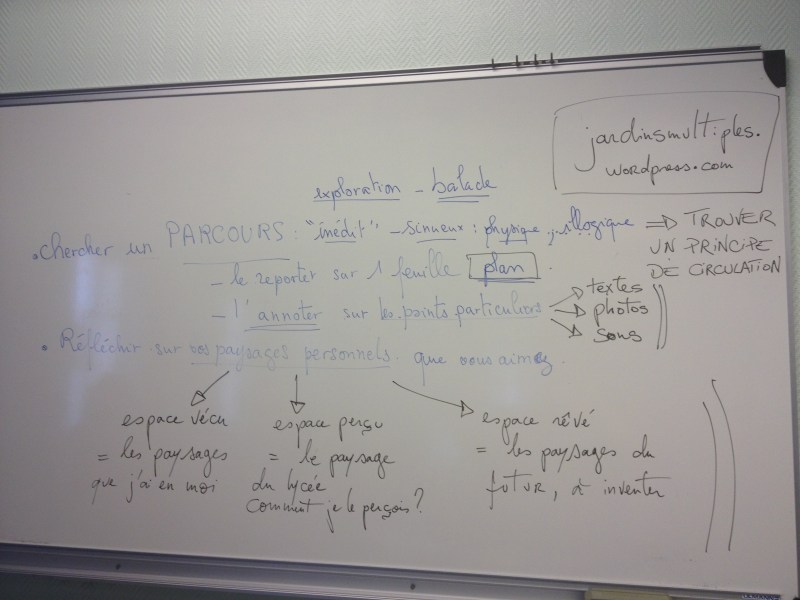 jardinsmultiples.
wordpress.com
exploration - balade
• Chercher un PARCOURS : "inédit" - sinueux : physique, illogique ⇒ TROUVER
UN PRINCIPE
DE CIRCULATION
- le reporter sur 1 feuille plan.
- l'annoter sur les points particuliers
textes
photos
sons
• Réfléchir sur vos paysages personnels que vous aimez.
espace vécu
= les paysages
que j'ai en moi
espace perçu
= le paysage
du lycée
Comment je le perçois ?
espace rêvé
= les paysages du
futur, à inventer